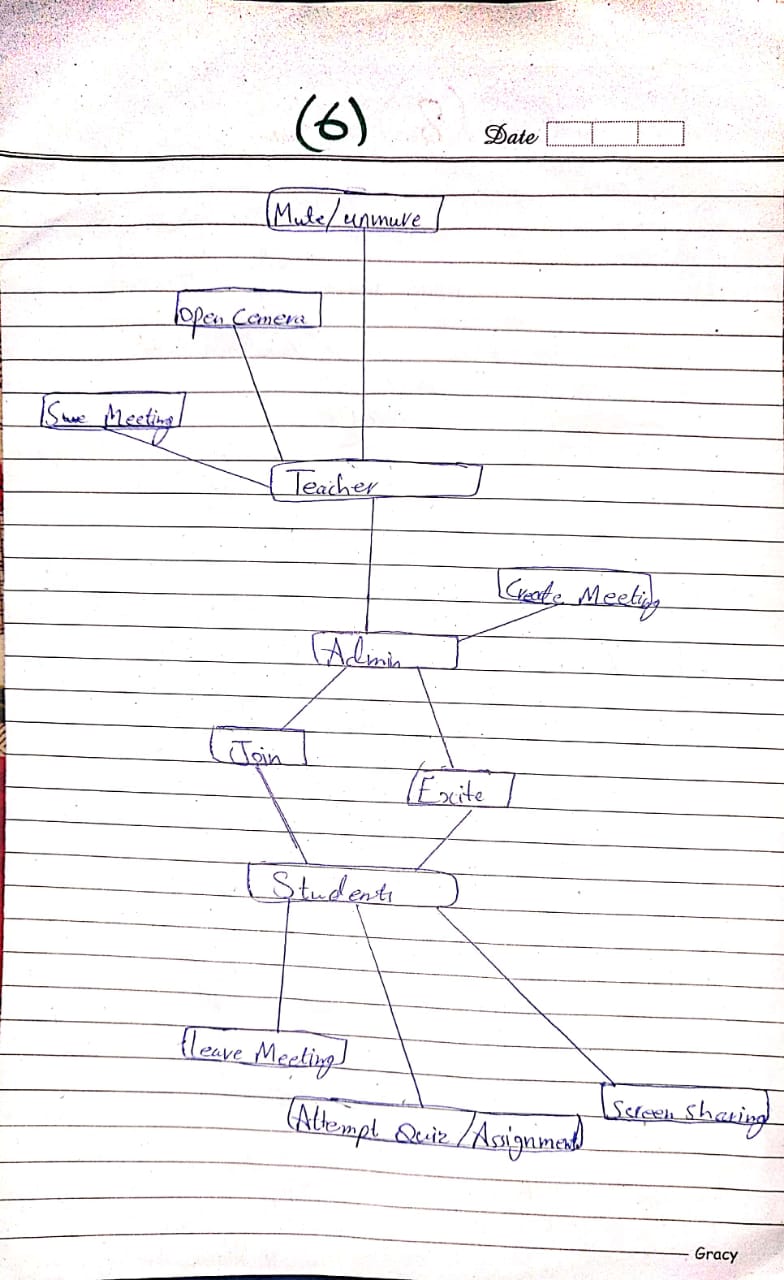 (6)
Date
Mute/unmute
Open Camera
Meeting
Teacher
Create Meeting
Admin
Join
Excite
Students
leave Meeting
Attempt Quiz/Assignment
Screen Sharing
Gracy